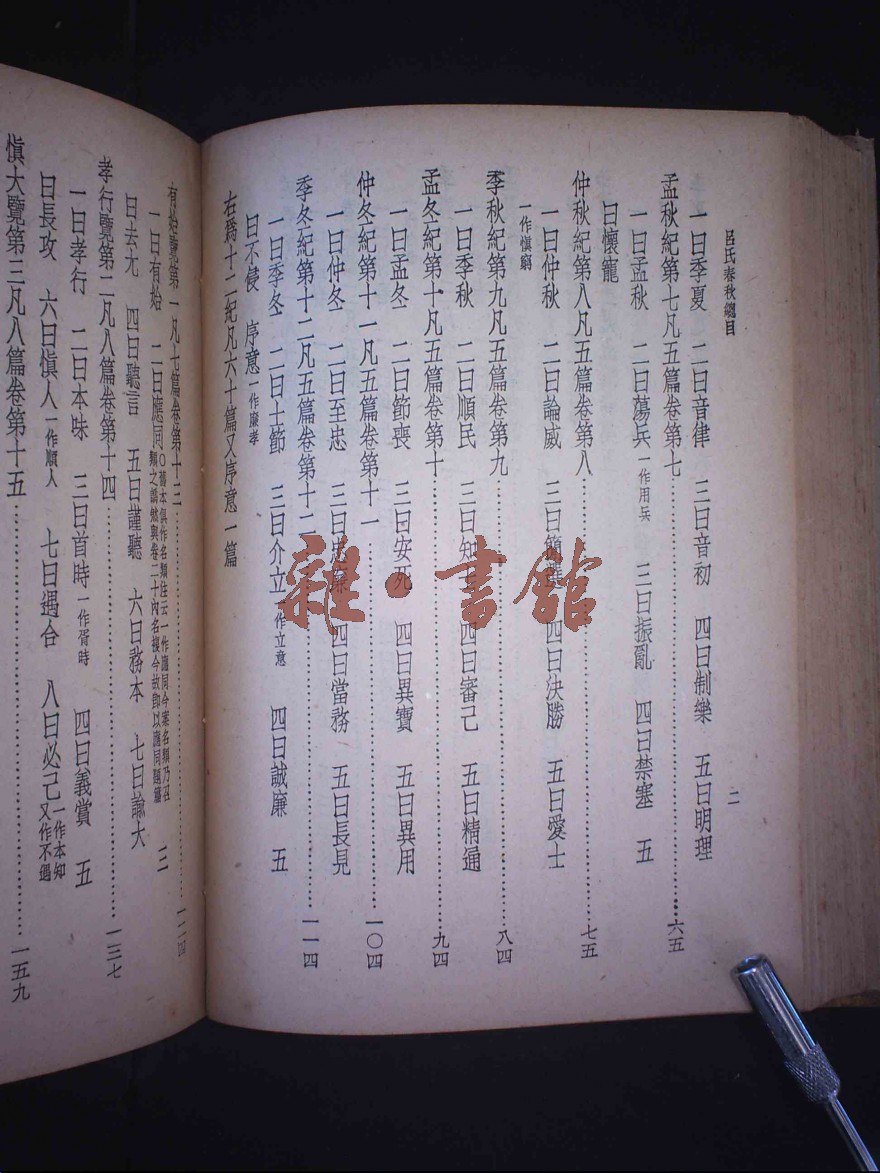 呂氏春秋總目
二
一曰季夏 二曰音律 三曰音初 四曰制樂 五曰明理
孟秋紀第七凡五篇卷第七……六五
一曰孟秋 二曰蕩兵一作用兵 三曰振亂 四曰禁塞 五
曰懷寵
仲秋紀第八凡五篇卷第八……七五
一曰仲秋 二曰論威 三曰簡選 四曰決勝 五曰愛士
一作愼窮
季秋紀第九凡五篇卷第九……八四
一曰季秋 二曰順民 三曰知士 四曰審己 五曰精通
孟冬紀第十凡五篇卷第十……九四
一曰孟冬 二曰節喪 三曰安死 四曰異寶 五曰異用
仲冬紀第十一凡五篇卷第十一……一〇四
一曰仲冬 二曰至忠 三曰忠廉 四曰當務 五曰長見
季冬紀第十二凡五篇卷第十二……一一四
一曰季冬 二曰士節 三曰介立一作立意 四曰誠廉 五
曰不侵 序意一作廉孝
右爲十二紀凡六十篇又序意一篇
有始覽第一凡七篇卷第十三……一二四
一曰有始 二曰應同〇舊本俱作名類注云一作應同今案名類乃召類之譌然與卷二十內名複今故即以應同題篇 三
曰去尤 四曰聽言 五曰謹聽 六曰務本 七曰諭大
孝行覽第二凡八篇卷第十四……一三七
一曰孝行 二曰本味 三曰首時一作胥時 四曰義賞 五
曰長攻 六曰愼人一作順人 七曰遇合 八曰必己一作本知又作不遇
愼大覽第三凡八篇卷第十五……一五九
雜·書館